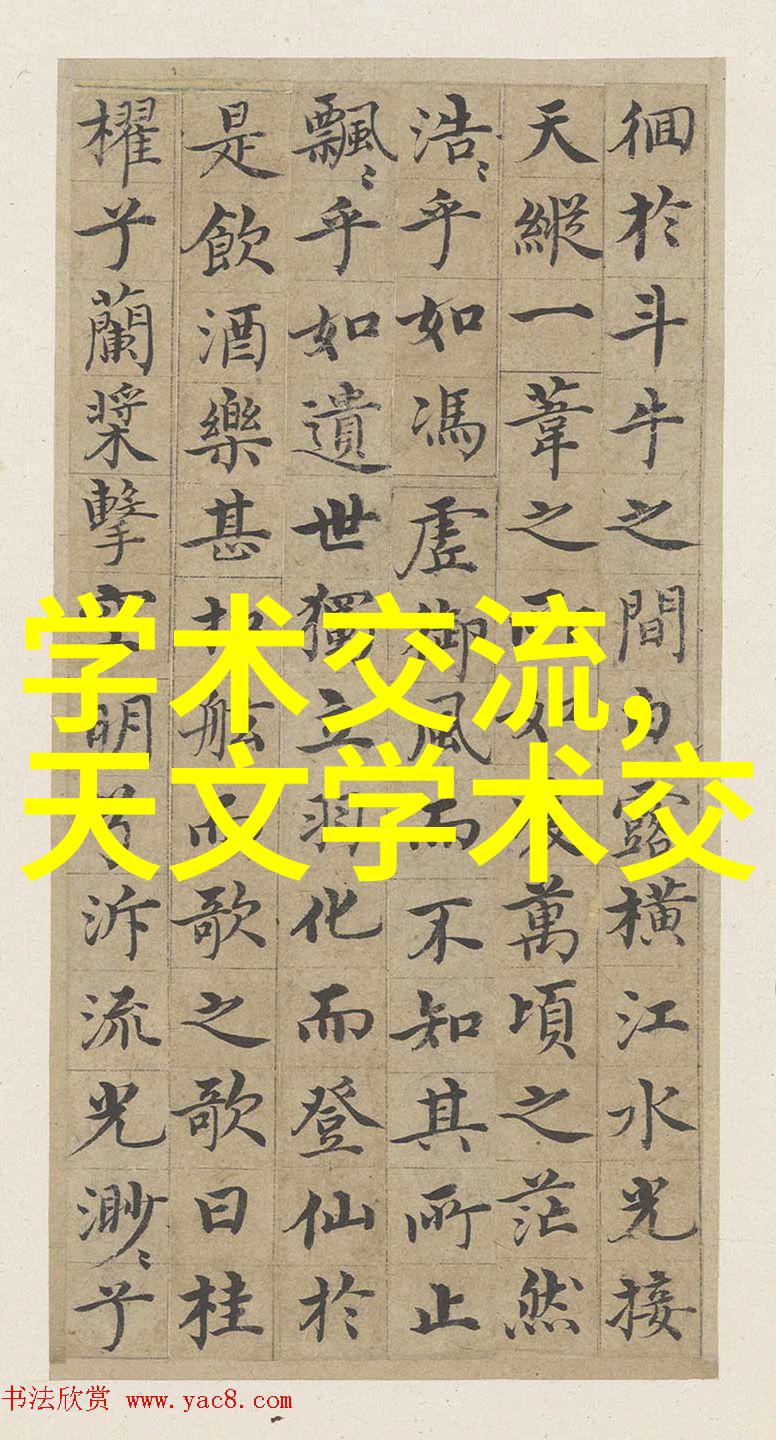 徊於斗牛之間白露橫江水光接
天縱一葦之所如凌萬頃之茫然
浩〻乎如馮虛御風而不知其所止
飄〻乎如遺世獨立羽化而登仙於
是飲酒樂甚扣舷而歌之歌曰桂
櫂兮蘭槳擊空明兮泝流光渺〻兮
学术交流,
天文学术交
书法欣赏 www.yac8.com